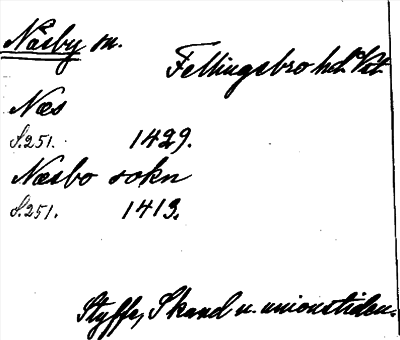 Näsby sn.
Fellingsbro hd. Vstm.
Næs
S. 251. 1429.
Næsbo sokn
S. 251. 1413.
Styffe, Skand. u. unionstiden.